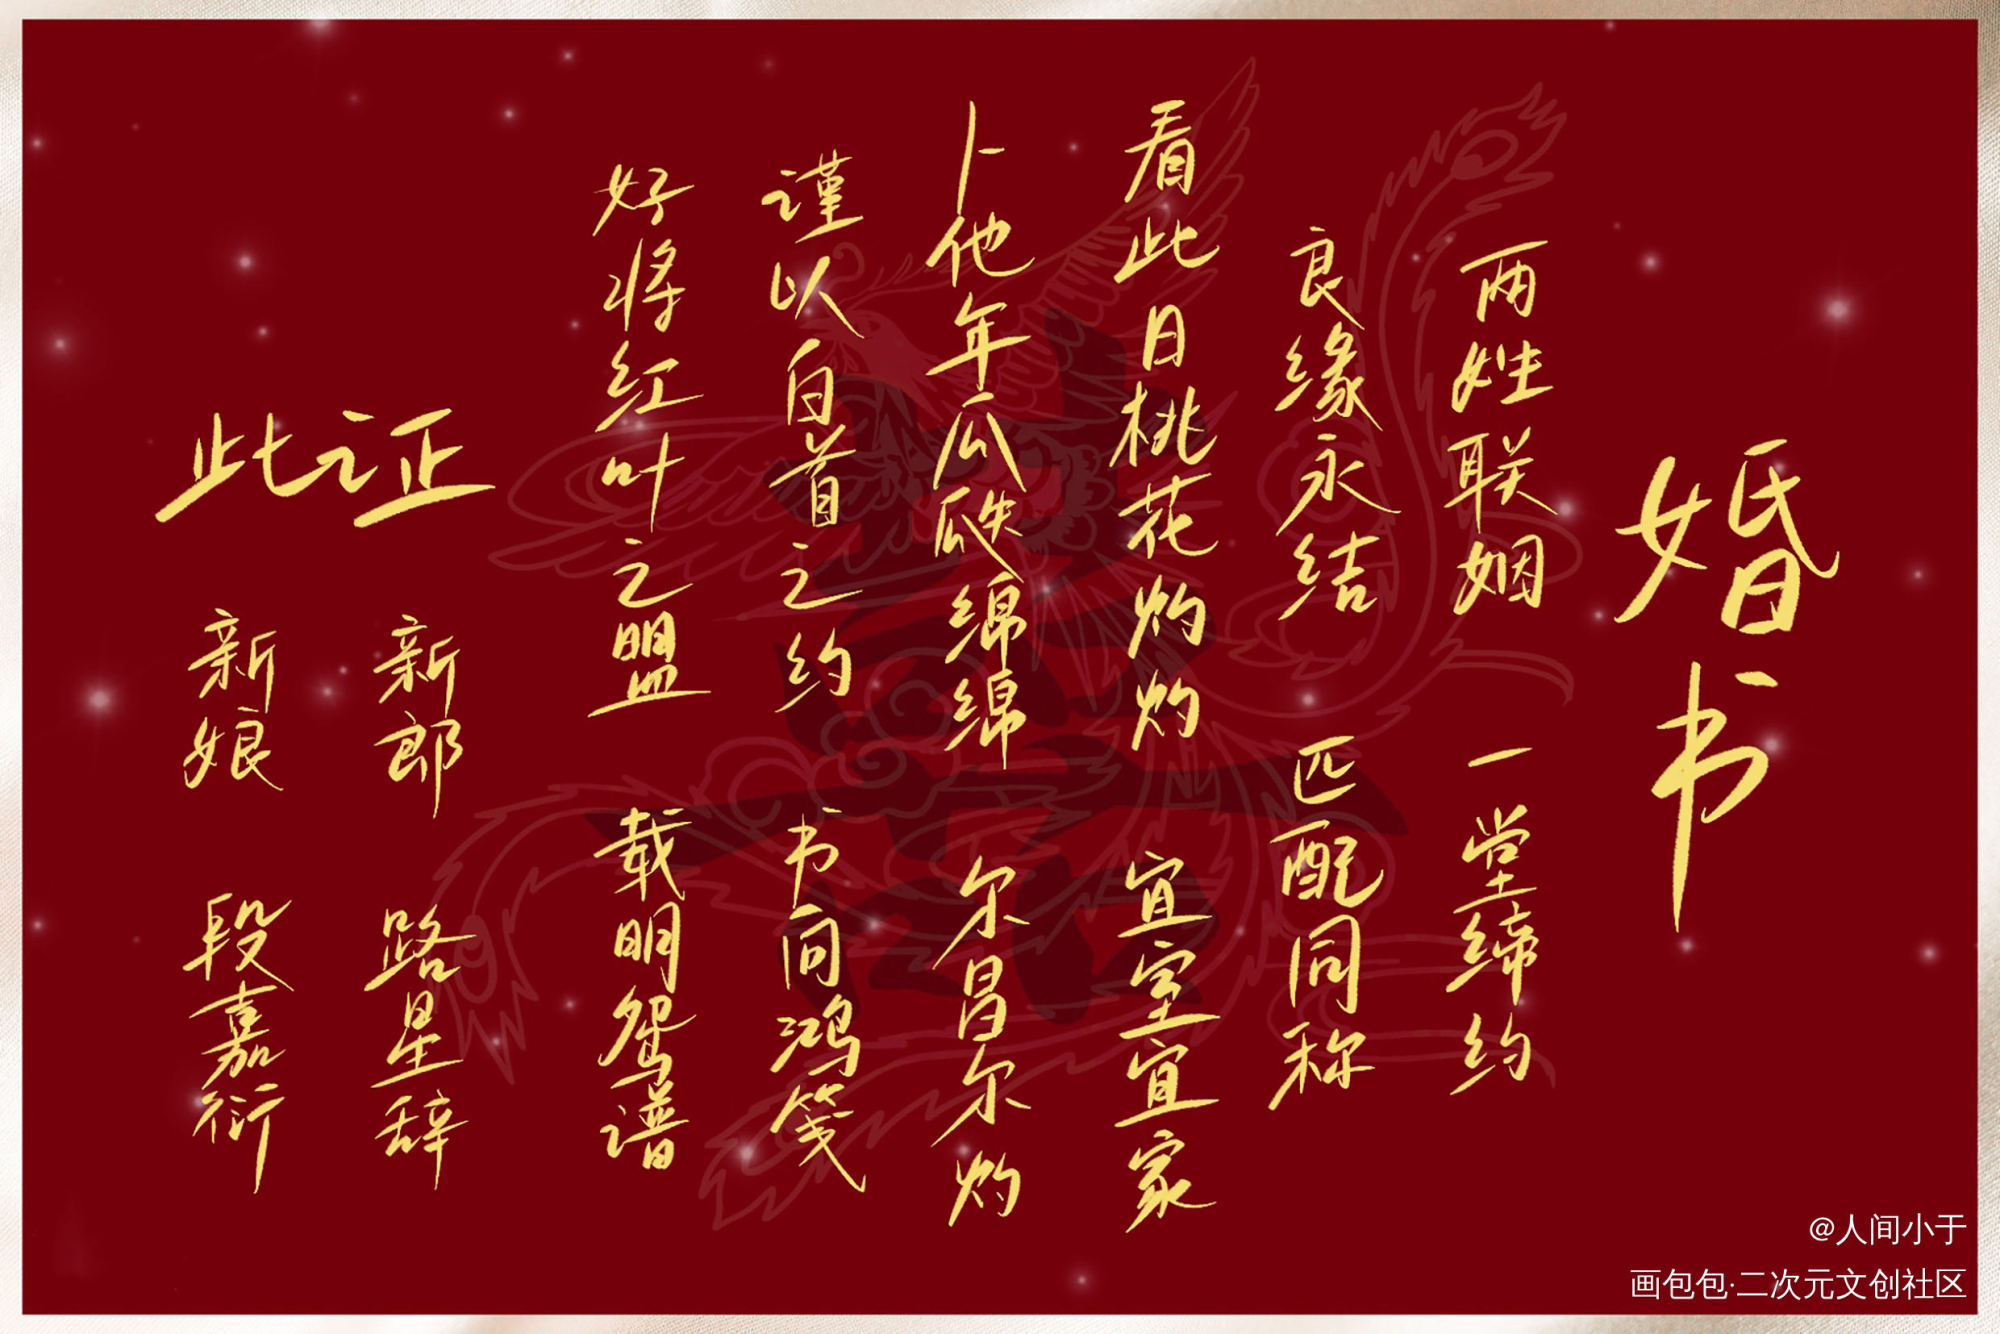 婚书
两姓联姻 一堂缔约
良缘永结 匹配同称
看此日桃花灼灼 宜室宜家
卜他年瓜瓞绵绵 尔昌尔灼
谨以白首之约 书向鸿笺
好将红叶之盟 载明鸳谱
此证
新郎 路星辞
新娘 段嘉衍
@人间小于
画包包·二次元文创社区